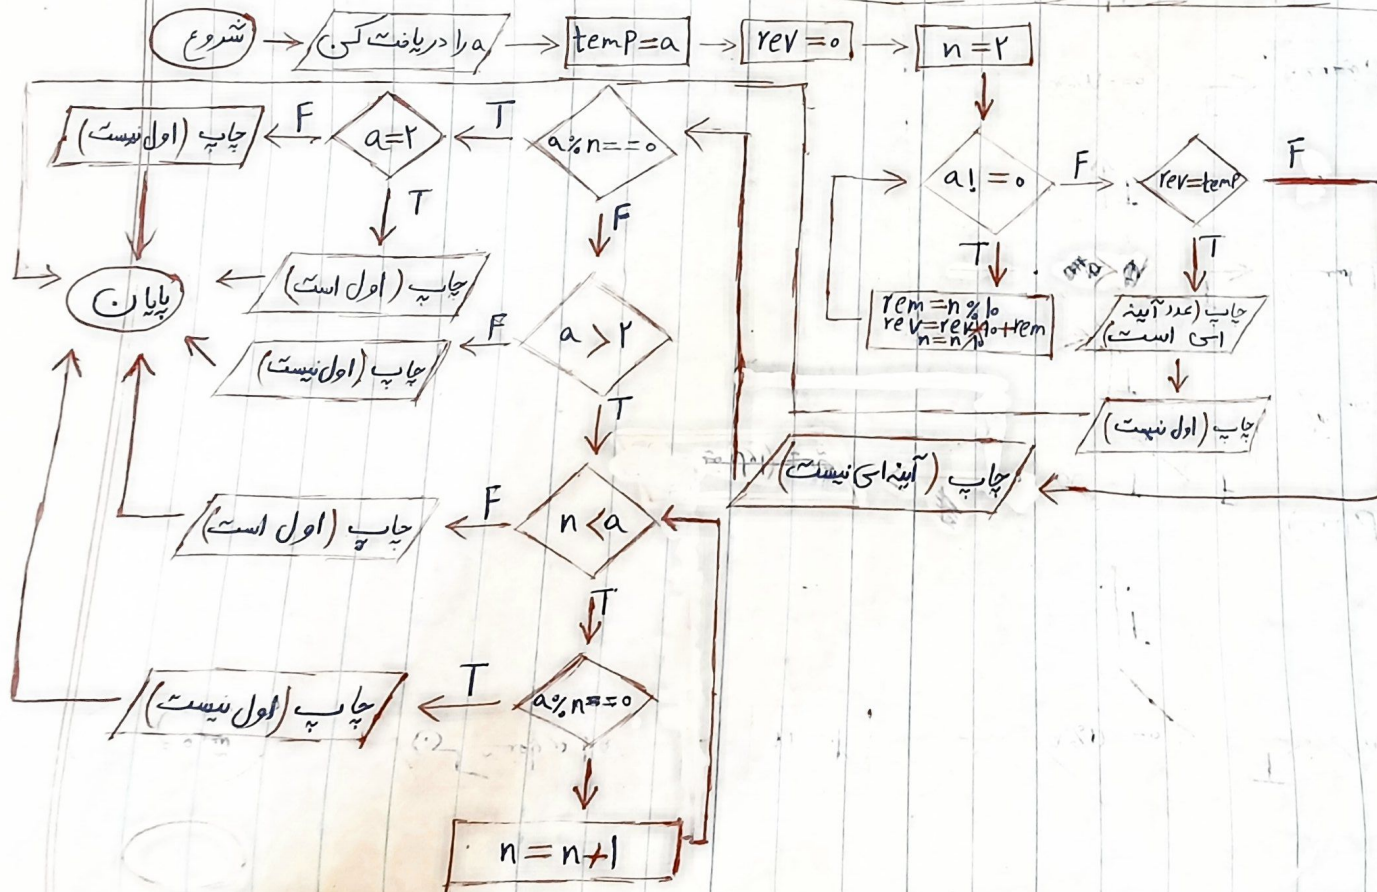 شروع
a را دریافت کن
temp=a
rev=۰
n=۲
a!=۰
F
rev=temp
F
T
rem=n%۱۰
rev=rev*۱۰+rem
n=n/۱۰
T
چاپ (عدد آینه
ای است)
چاپ (اول نیست)
چاپ (آینه ای نیست)
a%n==۰
T
a=۲
F
چاپ (اول نیست)
T
چاپ (اول است)
پایان
F
a>۲
F
چاپ (اول نیست)
T
n<a
F
چاپ (اول است)
T
a%n==۰
T
چاپ (اول نیست)
n=n+۱